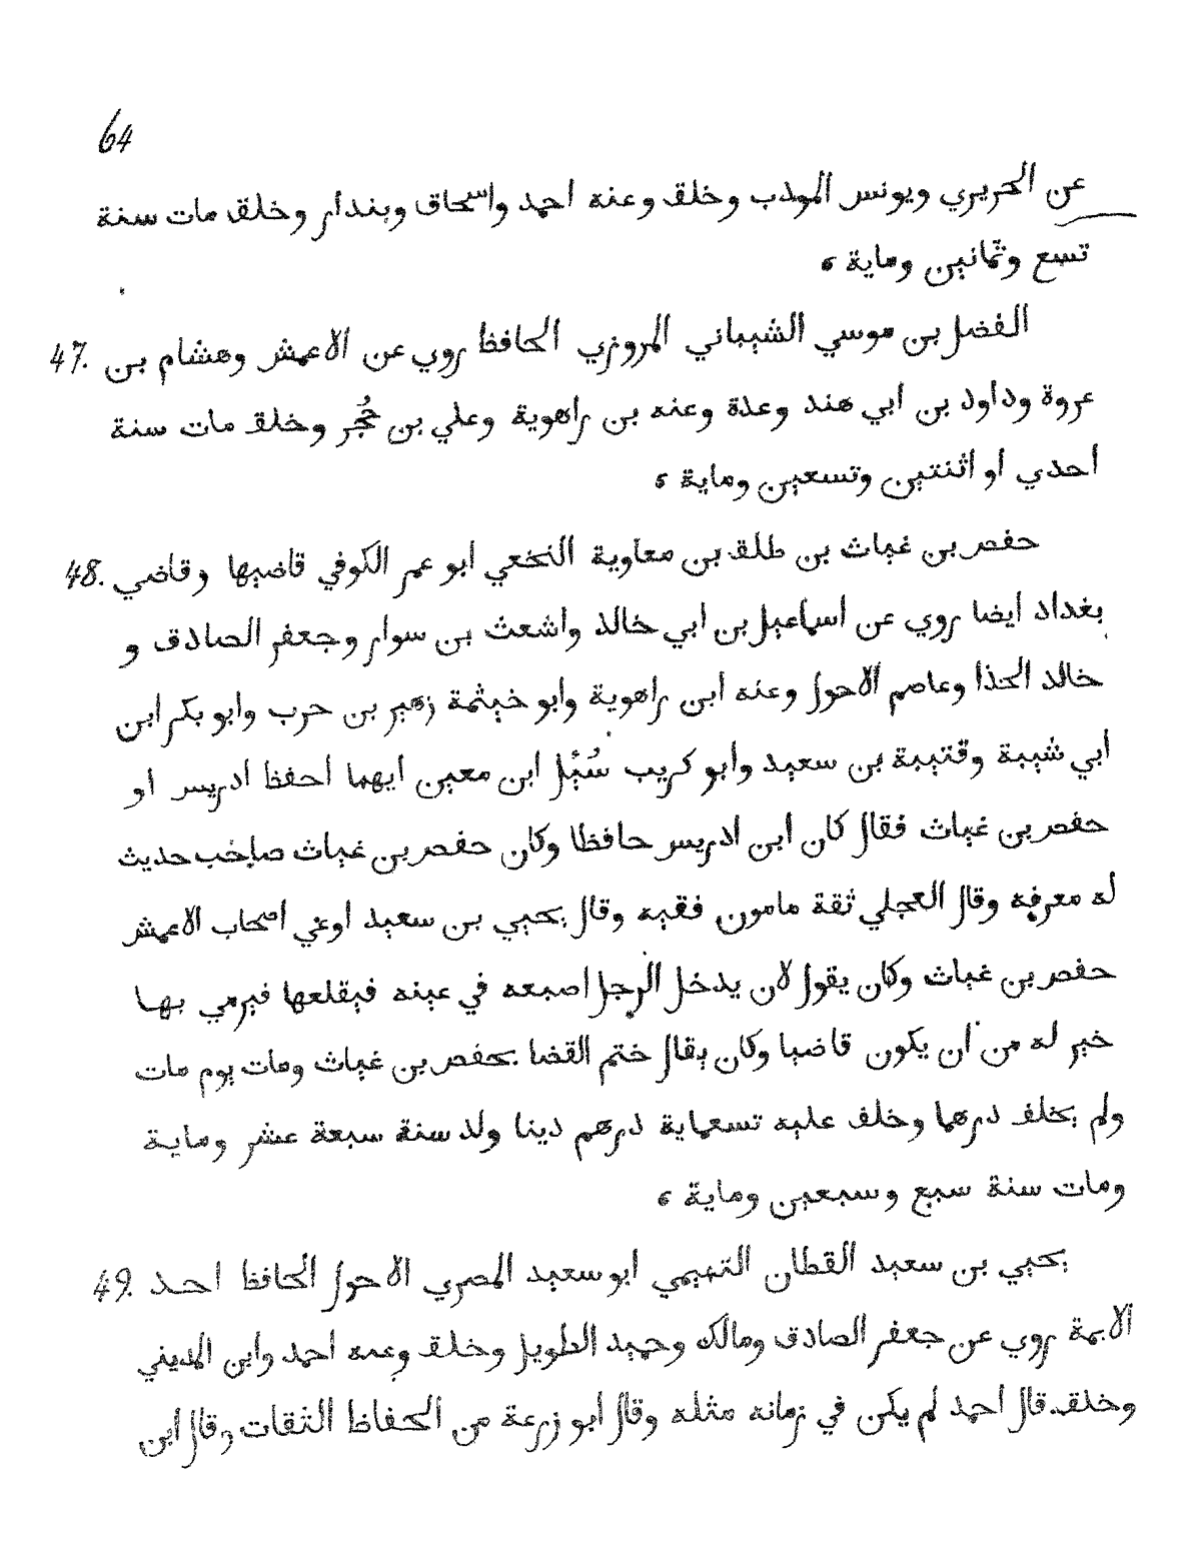 64
عن الحريري ويونس المودب وخلق وعنه احمد واسحاق وبندار وخلق مات سنة
تسع وثمانين وماية ،
47. الفضل بن موسي الشيباني المروزي الحافظ روي عن الاعمش وهشام بن
عروة وداود بن ابي هند وعدة وعنه بن راهوية وعلي بن حُجر وخلق مات سنة
احدي او اثنتين وتسعين وماية ،
48. حفص بن غياث بن طلق بن معاوية النخعي ابو عمر الكوفي قاضيها وقاضي
بغداد ايضا روي عن اسماعيل بن ابي خالد واشعث بن سوار وجعفر الصادق و
خالد الحذا وعاصم الاحول وعنه ابن راهوية وابو خيثمة زهير بن حرب وابو بكر ابن
ابي شيبة وقتيبة بن سعيد وابو كريب سُئِل ابن معين ايهما احفظ ادريس او
حفص بن غياث فقال كان ابن ادريس حافظا وكان حفص بن غياث صاحب حديث
له معرفه وقال العجلي ثقة مامون فقيه وقال يحيي بن سعيد اوعي اصحاب الاعمش
حفص بن غياث وكان يقول لان يدخل الرجل اصبعه في عينه فيقلعها فيرمي بها
خير له من ان يكون قاضيا وكان يقال ختم القضا بحفص بن غياث ومات يوم مات
ولم يخلف درهما وخلف عليه تسعماية درهم دينا ولد سنة سبعة عشر وماية
ومات سنة سبع وسبعين وماية ،
49. يحيي بن سعيد القطان التميمي ابو سعيد المصري الاحول الحافظ احد
الايمة روي عن جعفر الصادق ومالك وحميد الطويل وخلق وعنه احمد وابن المديني
وخلق قال احمد لم يكن في زمانه مثله وقال ابو زرعة من الحفاظ الثقات وقال ابن